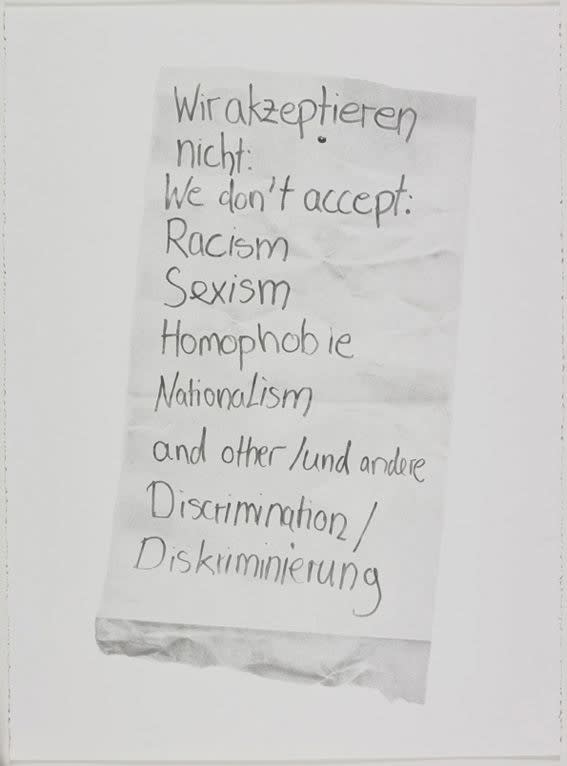 Wir akzeptieren
nicht:
We don't accept:
Racism
Sexism
Homophobie
Nationalism
and other /und andere
Discrimination/
Diskriminierung